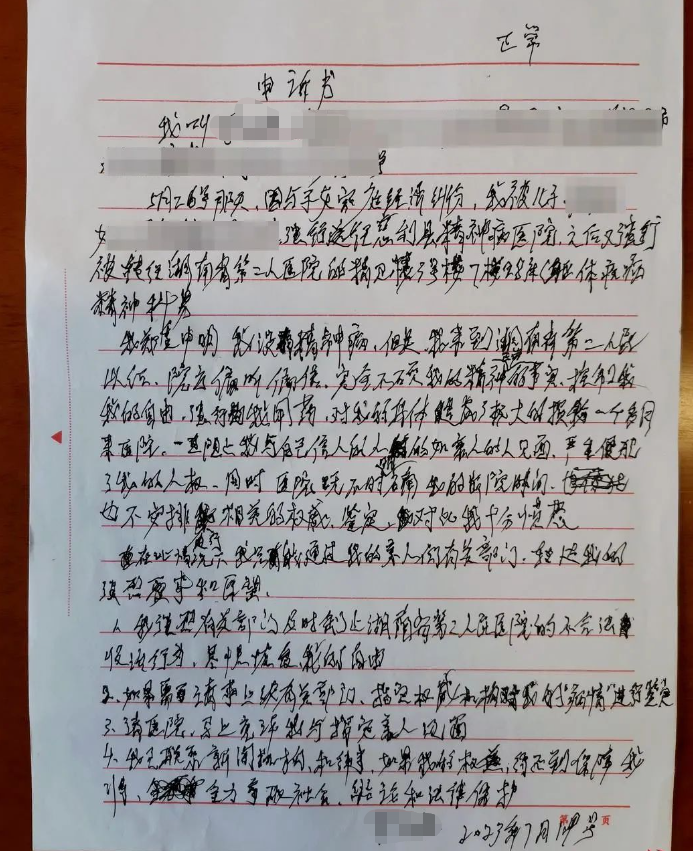 正常
申诉书
我叫
5月26号那天，因与子女家庭经济纠纷，我被儿子
强行送往慈利县精神病医院，之后又强行
被转往湖南省第二人民医院的 楼7楼 体症病
精神科
我郑重申明 我没有精神病，但是 我来到湖南省第二人民
以后，院方偏听偏信，完全不 我的精神 事实，控制我
我的自由，强行 我用药，对我的身体造成了极大的损 一个多月
来医院，一直阻止我与自己信 的人 的如亲人的人见面，严重侵犯
了我的人权，同时 医院既不明确我的出院时间，
也不安排 相关的权威，鉴定，对此我十分愤慨
在此情况下 我只能通过我的亲人们有关部门，转达我的
强烈要求和 愿。
1、我 有关部门及时 止湖南省第二人民医院的不合法
收治行为，尽快恢复我的自由
2、如果需要请求上级有关部门，指定权威机构对我的“病情”进行鉴定
3、请医院，马上允许我与指定亲人见面
4、我已联系新闻机构，和律师，如果我的权益，得不到保障我
们将，全力争取社会，舆论和法律保护
2023年7月 号
第 页